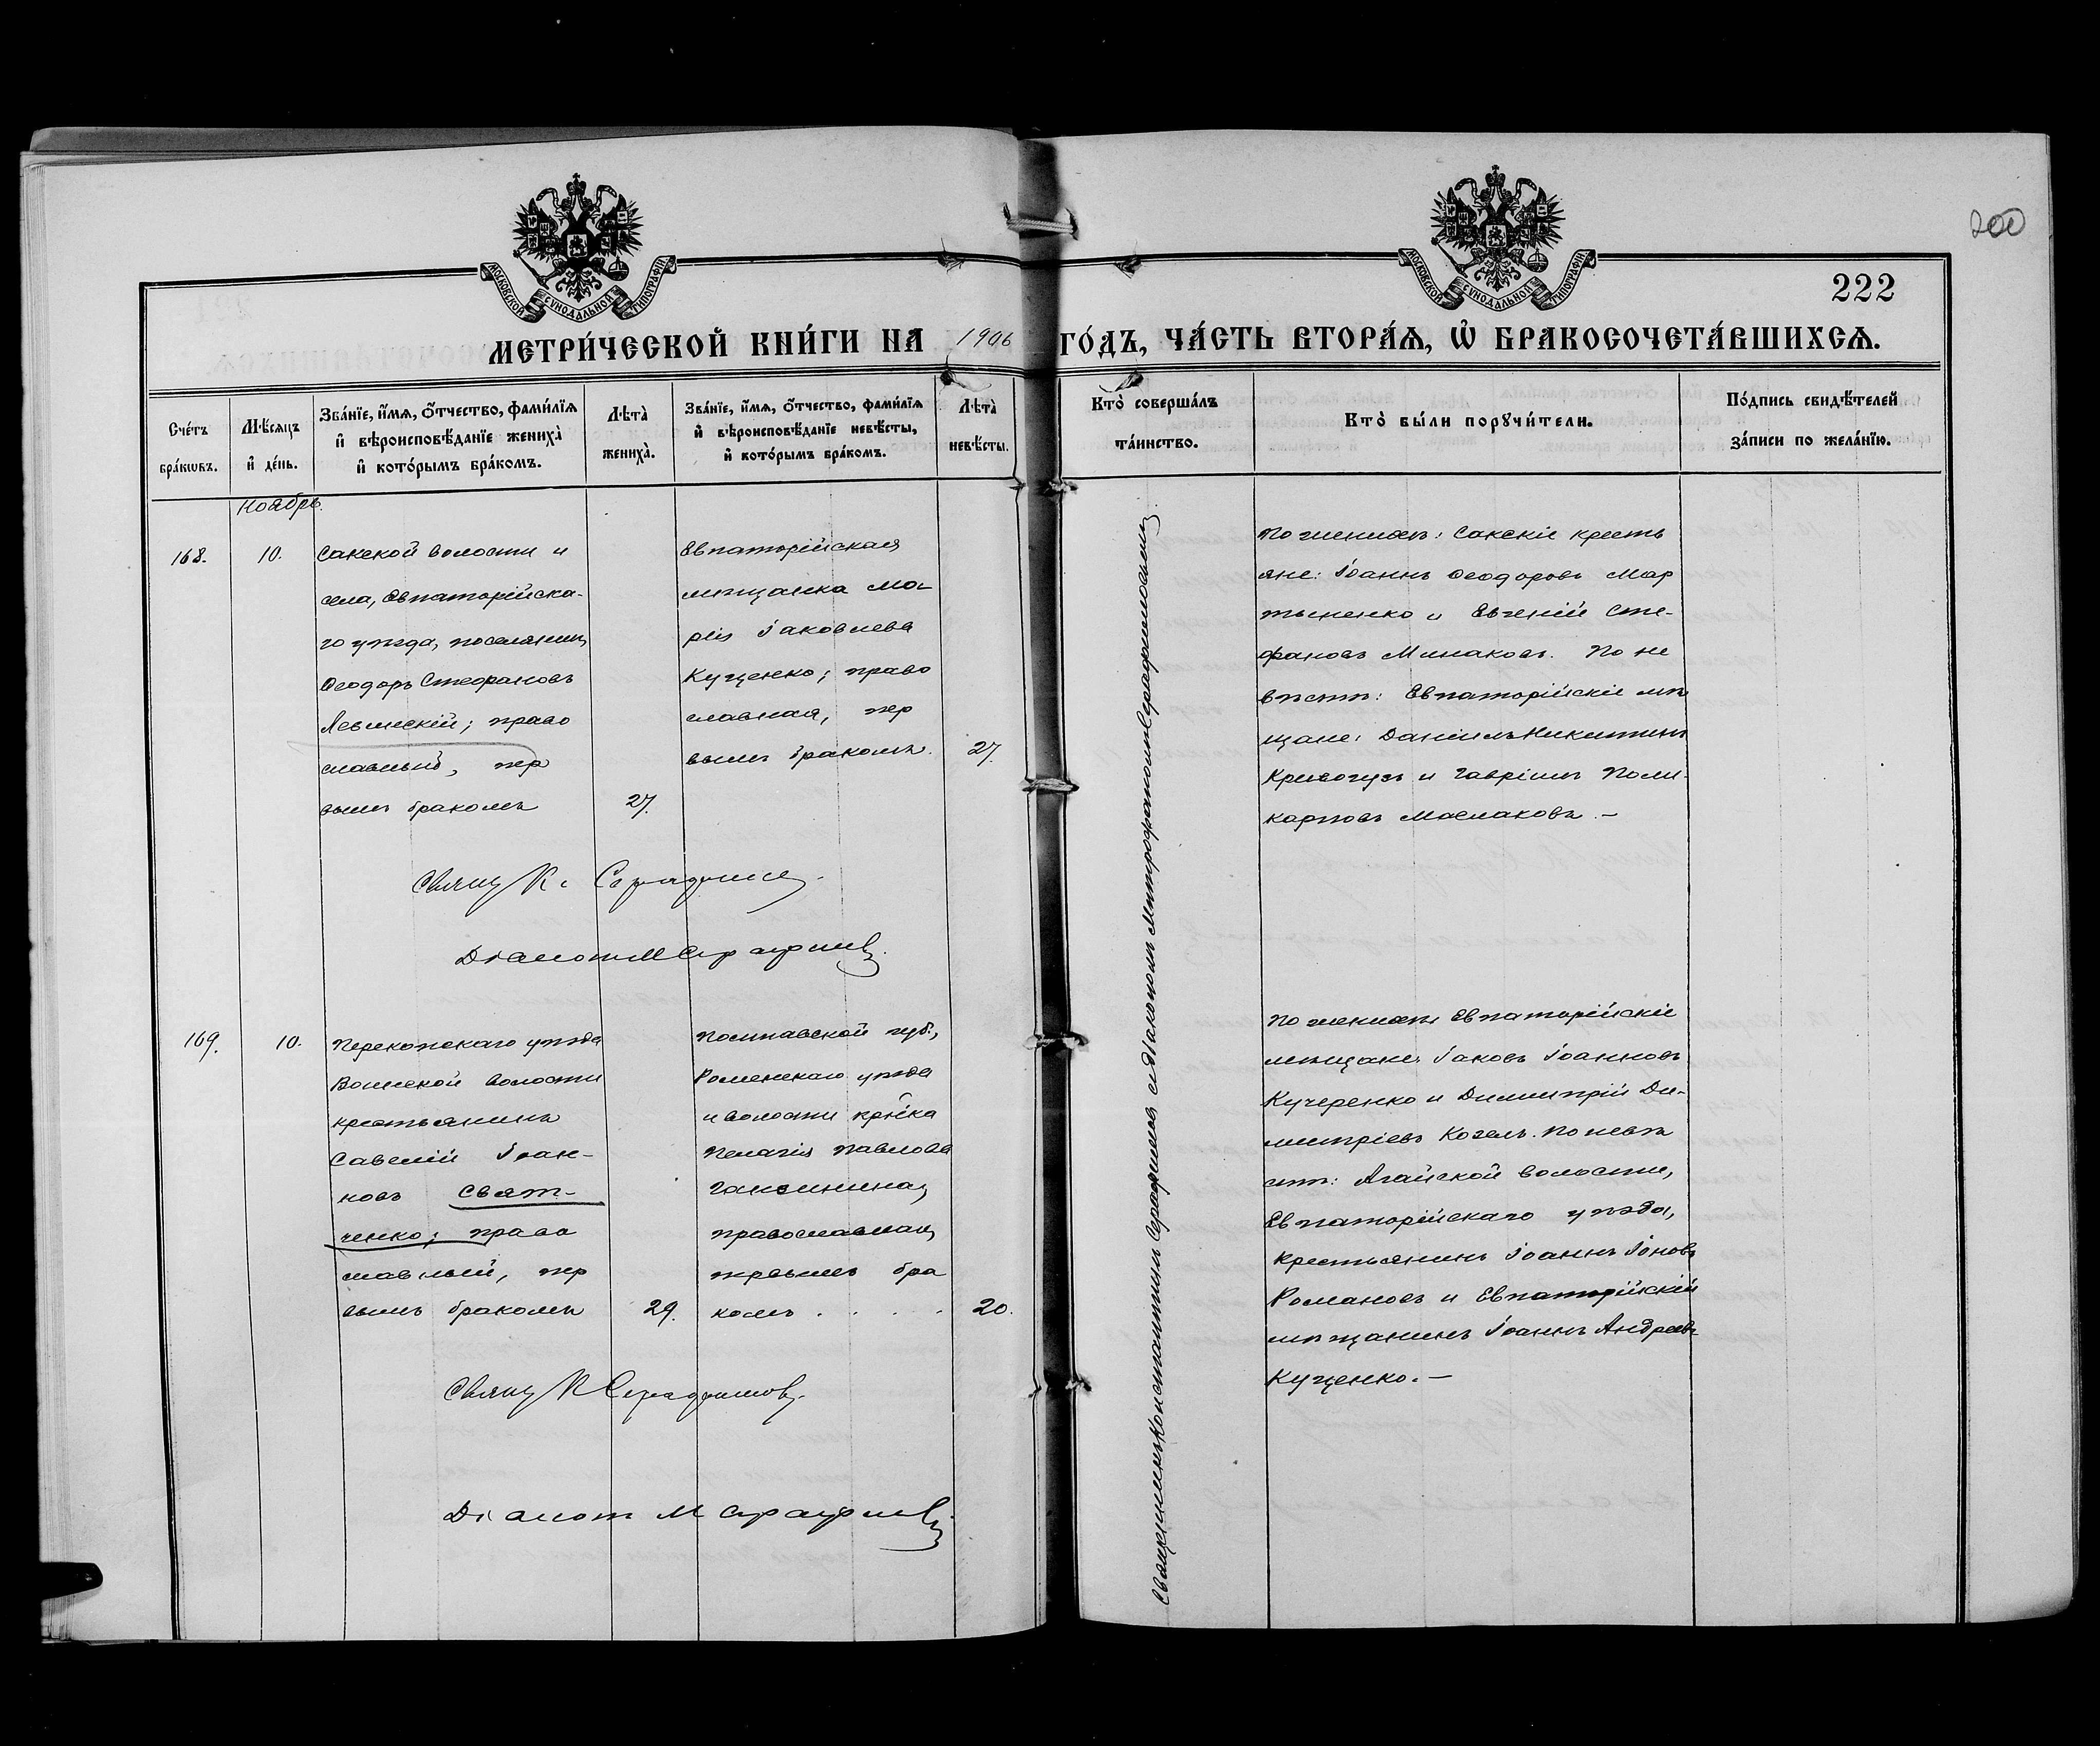 200
222
МОСКОВСКОЙ СѴНОДАЛЬНОЙ ТИПОГРАФІИ
МОСКОВСКОЙ СѴНОДАЛЬНОЙ ТИПОГРАФІИ
МЕТРИ́ЧЕСКОЙ КНИ́ГИ НА 1906 ГО́ДЪ, ЧА́СТЬ ВТОРА́Ѧ, Ѽ БРАКОСОЧЕТА́ВШИХСѦ.
Сче́тъ
бра́кѡвъ.
Мѣ́сяцъ
и҆ де́нь.
Зва́нїе, и҆́мѧ, ѻ҆́тчество, фами́лїѧ
и҆ вѣроисповѣ́данїе жениха̀
и҆ кото́рымъ бра́комъ.
Лѣта̀
жениха̀.
Зва́нїе, и҆́мѧ, ѻ҆́тчество, фами́лїѧ
и҆ вѣроисповѣ́данїе невѣ́сты,
и҆ кото́рымъ бра́комъ.
Лѣта̀
невѣ́сты.
Кто̀ соверша́лъ
та́инство.
Кто̀ бы́ли порꙋчи́тели.
По́дпись свидѣ́телей
за́писи по жела́нїю.
Ноябрь.
168.
10.
Сакской волости и
села, Евпаторійска-
го уѣзда, поселянинъ
Ѳеодоръ Стефановъ
православный, пер
вымъ бракомъ
27.
Евпаторійская
мѣщанка Ма-
рія Іаковлева
Куценко; право
славная, пер
вымъ бракомъ.
27.
По женихѣ: Сакскіе кресть
яне: Іоаннъ Ѳеодоровъ Мар
тыненко и Евгеній Сте-
фановъ Минаковъ. По не
вѣстѣ: Евпаторійскіе мѣ
щане: Даніилъ Никитинъ
Кривогузъ и Гавріилъ Поли-
карповъ Маслаковъ. —
Священникъ Константинъ Серафимовъ съ діакономъ Митрофаномъ Серафимовымъ.
Свящ К. Серафимов.
Діаконъ М Серафимов.
169.
10.
Перекопскаго уѣзда
Воинской волости
крестьянинъ
Савелій Іоан-
новъ Свят-
ченко; право
славный, пер
вымъ бракомъ
29.
Полтавской губ.,
Роменскаго уѣзда
и волости кр-нка
Пелагія Павлова
православная,
первымъ бра
комъ . . . .
20.
По женихѣ Евпаторійскіе
мѣщане: Іаковъ Іоанновъ
Кучеренко и Димитрій Ди-
митріевъ Козелъ. По невѣ
стѣ: Агайской волости,
Евпаторійскаго уѣзда,
крестьянинъ Іоаннъ Іоновъ
Романовъ и Евпаторійскій
мѣщанинъ Іоаннъ Андреевъ
Куценко. —
Свящ К Серафимов.
Діаконъ М Серафимов